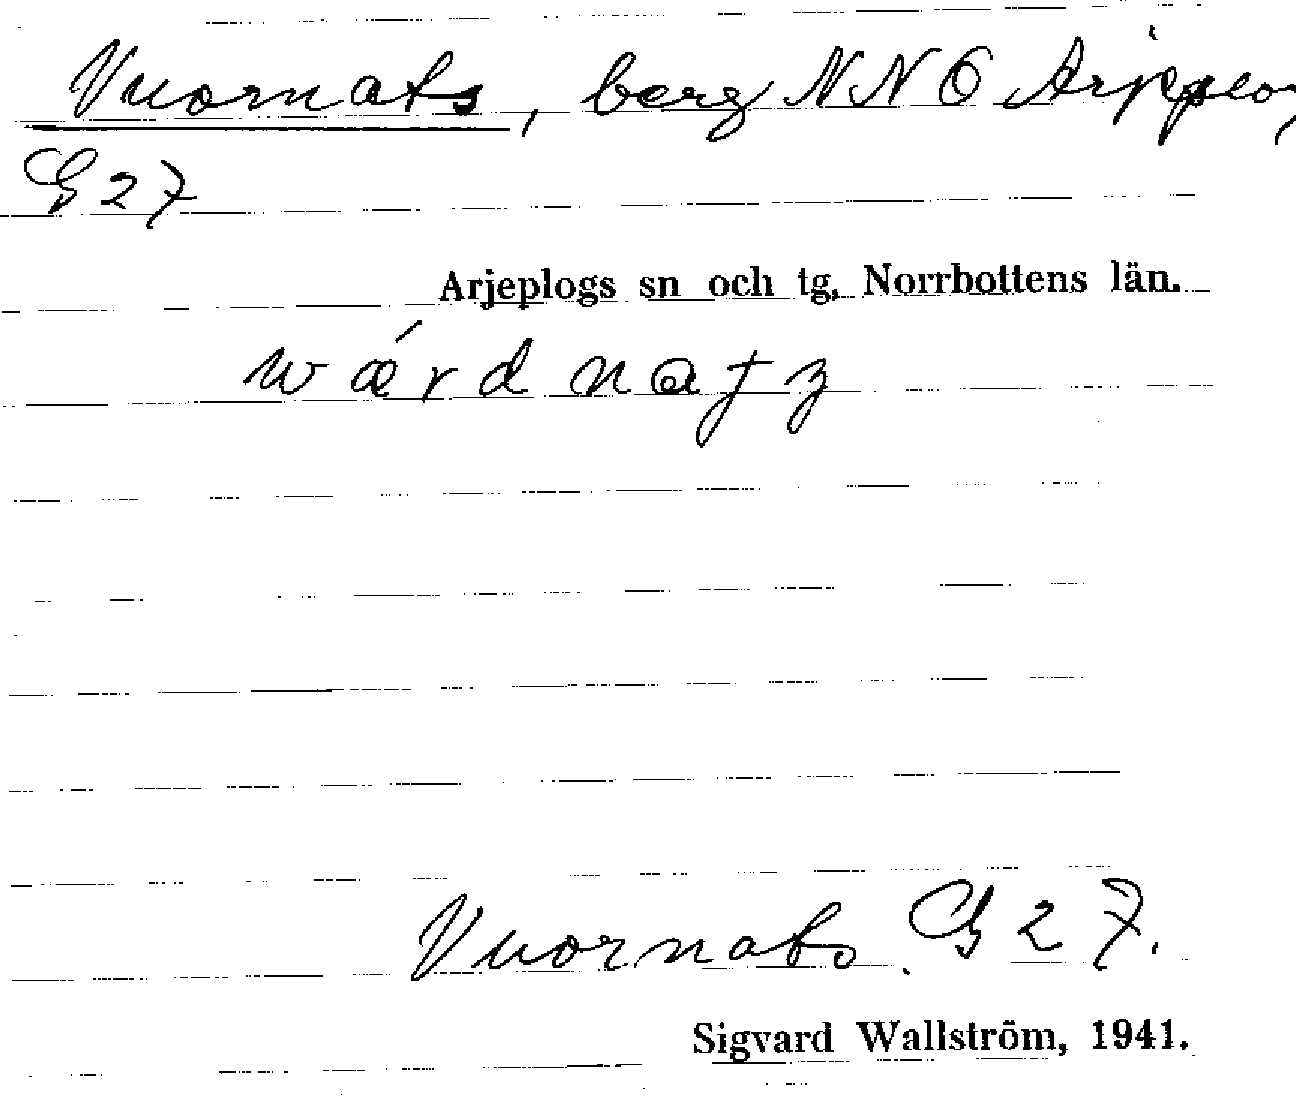 Vuornats, berg NNO Arjeplog,
G 27
Arjeplogs sn och tg, Norrbottens län.
wǽrdnaʈʒ
Vuornats. G 27.
Sigvard Wallström, 1941.